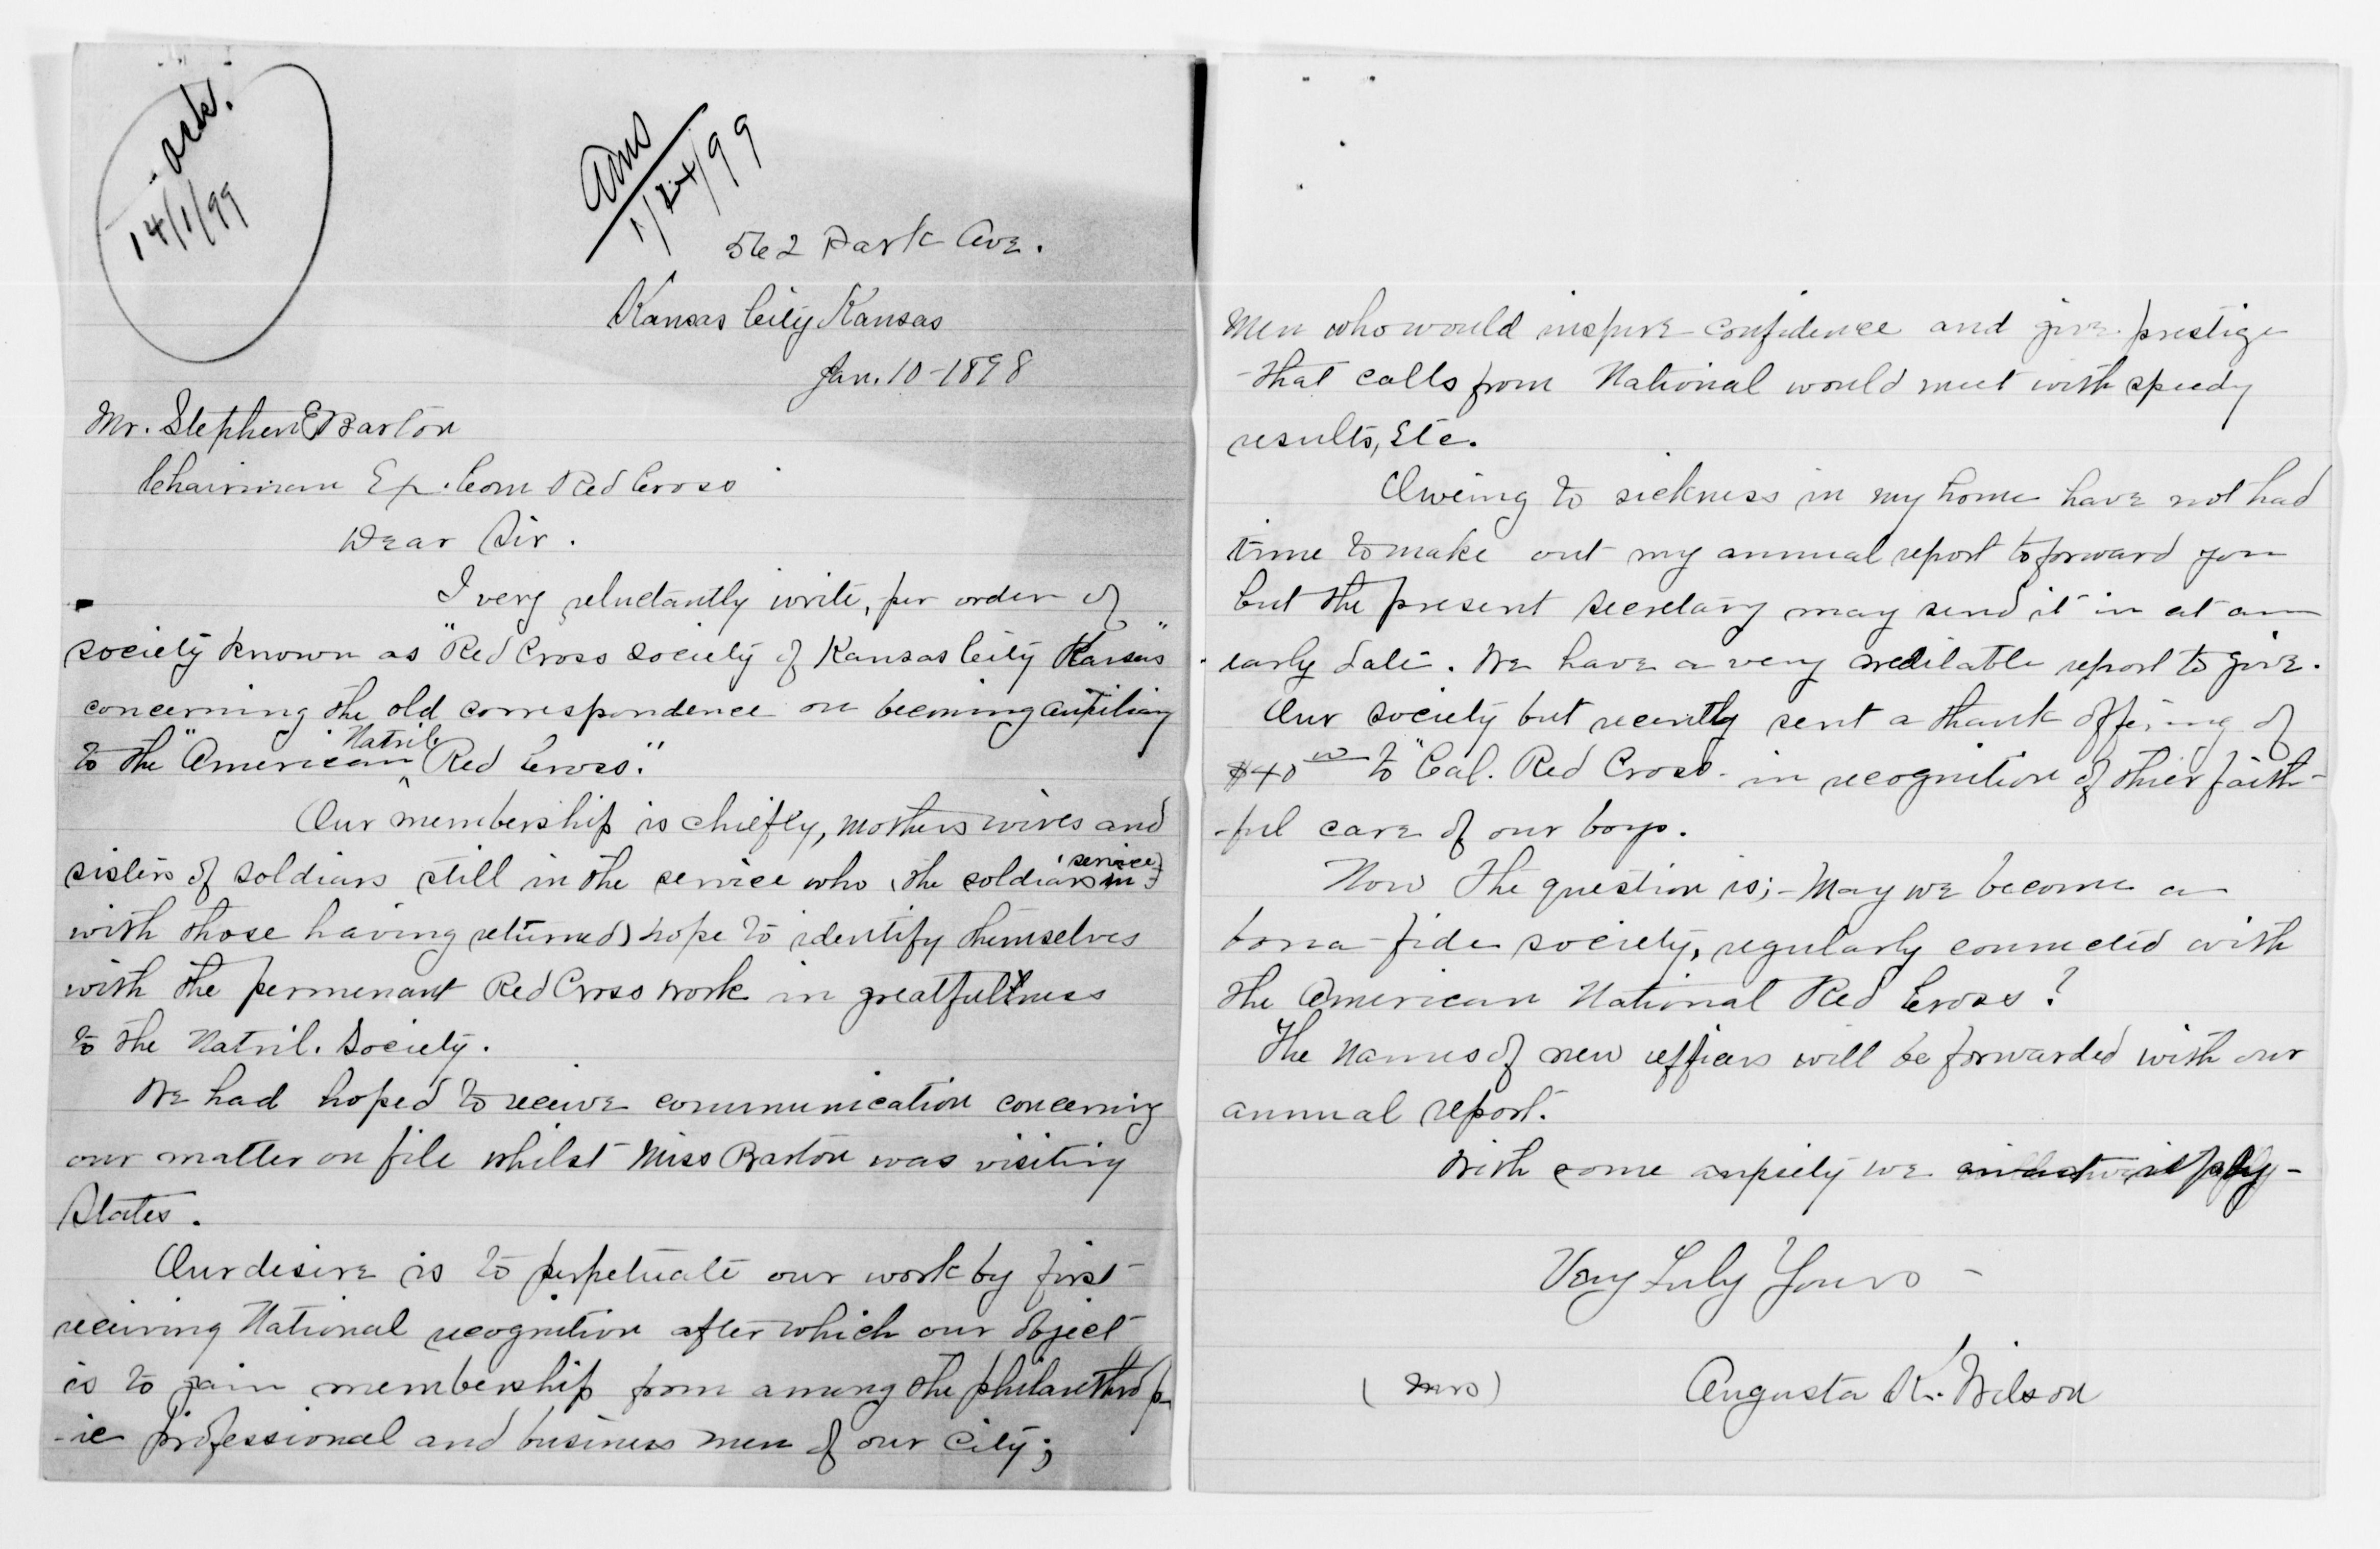 ack.
14/1/99
Ans
1/24/99
562 Park Ave.
Kansas City Kansas
Jan. 10-1898
Mr. Stephen E Barton
Chairman Ex. Com Red Cross
Dear Sir.
I very reluctantly write, per order of
society known as "Red Cross Society of Kansas City Kansas"
concerning the old correspondence on becoming auxiliary
to the "American Natnl. Red Cross."
Our membership is chiefly, mothers wives and
sisters of soldiers still in the service who (the soldiers in service
with those having returned) hope to identify themselves
with the permenant Red Cross work in greatfullness
to the Natnl. Society.
We had hoped to receive communication concerning
our matter on file whilst Miss Barton was visiting
States.
Our desire is to perpetuate our work by first
receiving National recognition after which our object
is to gain membership from among the philanthrop-
-ic professional and business men of our City;
Men who would inspire confidence and give prestige
that calls from National would meet with speedy
results, Etc.
Oweing to sickness in my home have not had
time to make out my annual report to forward you
but the present secretary may send it in at an
early date. We have a very creditable report to give.
Our society but recently sent a thank offering of
$40 00 to "Cal. Red Cross. in recognition of thier faith-
-ful care of our boys.
Now the question is;- May we become a
bona-fide society, regularly connected with
the American National Red Cross?
The names of new officers will be forwarded with our
annual report.
With some anxiety we await reply-
Very Truly Yours -
(Mrs) Augusta K. Wilson